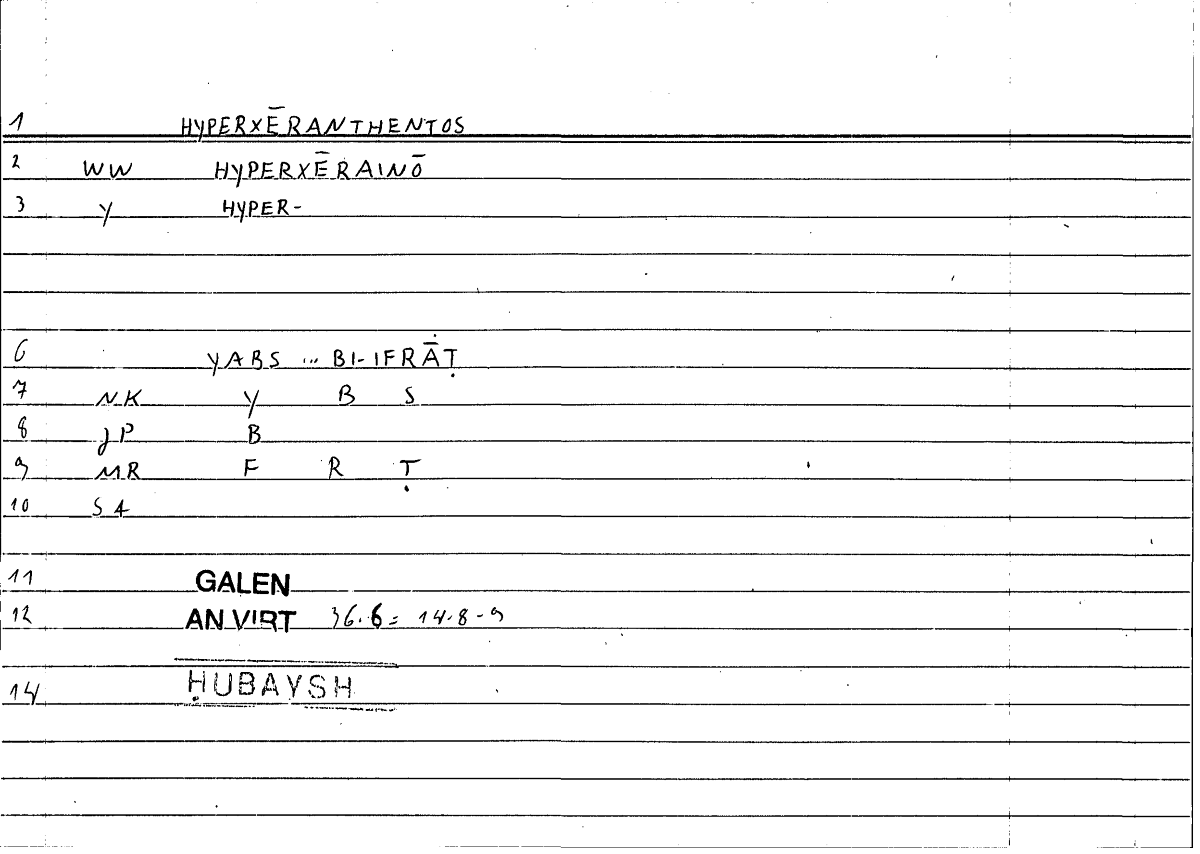 1 HYPERXĒRANTHENTOS
2 WW HYPERXĒRAINŌ
3 Y HYPER-
6 YABS ... BI-IFRĀṬ
7 NK Y B S
8 JP B
9 MR F R Ṭ
10 S4
11 GALEN
12 AN VIRT 36.6 = 14.8-9
14 ḤUBAYSH